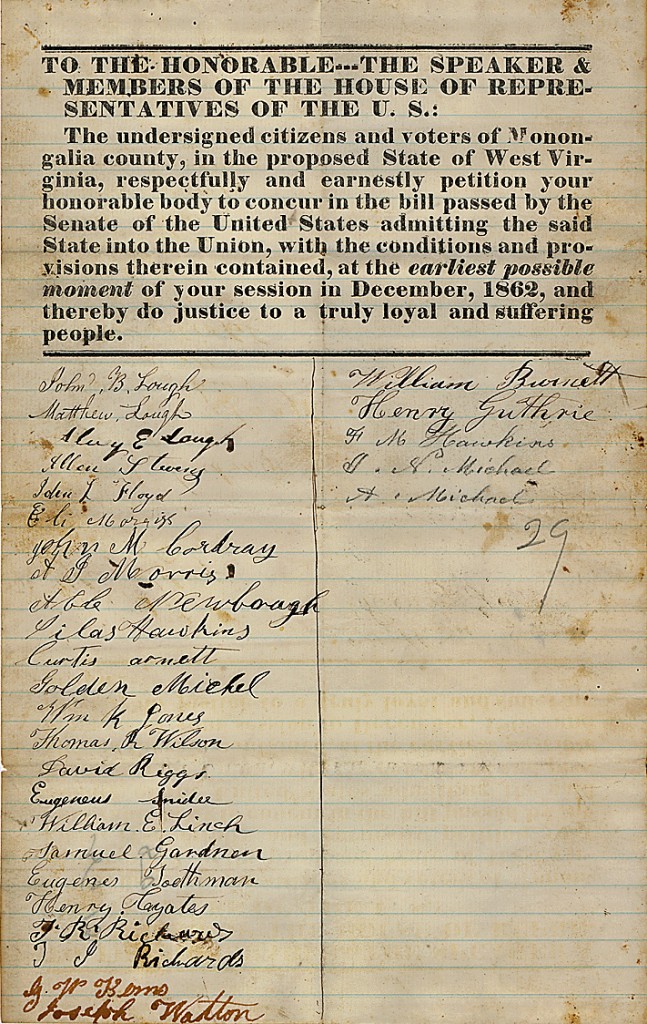 TO THE HONORABLE---THE SPEAKER &
MEMBERS OF THE HOUSE OF REPRE-
SENTATIVES OF THE U. S.:
The undersigned citizens and voters of Monon-
galia county, in the proposed State of West Vir-
ginia, respectfully and earnestly petition your
honorable body to concur in the bill passed by the
Senate of the United States admitting the said
State into the Union, with the conditions and pro-
visions therein contained, at the earliest possible
moment of your session in December, 1862, and
thereby do justice to a truly loyal and suffering
people.
John B. Lough
Matthew Lough
E Lough
Allen
L Floyd
Eli Morris
John M Cordray
A J Morris
Able Newbraugh
Silas Hawkins
Curtis arnett
Golden Michel
Wm K Jones
Thomas R Wilson
David Riggs
Eugeneus Snidee
William E. Linch
Samuel Gardnen
Eugenis Toothman
Henry Yates
T. R. Richards
T J Richards
G. W. Kems
Joseph Watton
William Burnett
Henry Guthrie
F M Hawkins
I. N. Michael
A. Michael
29